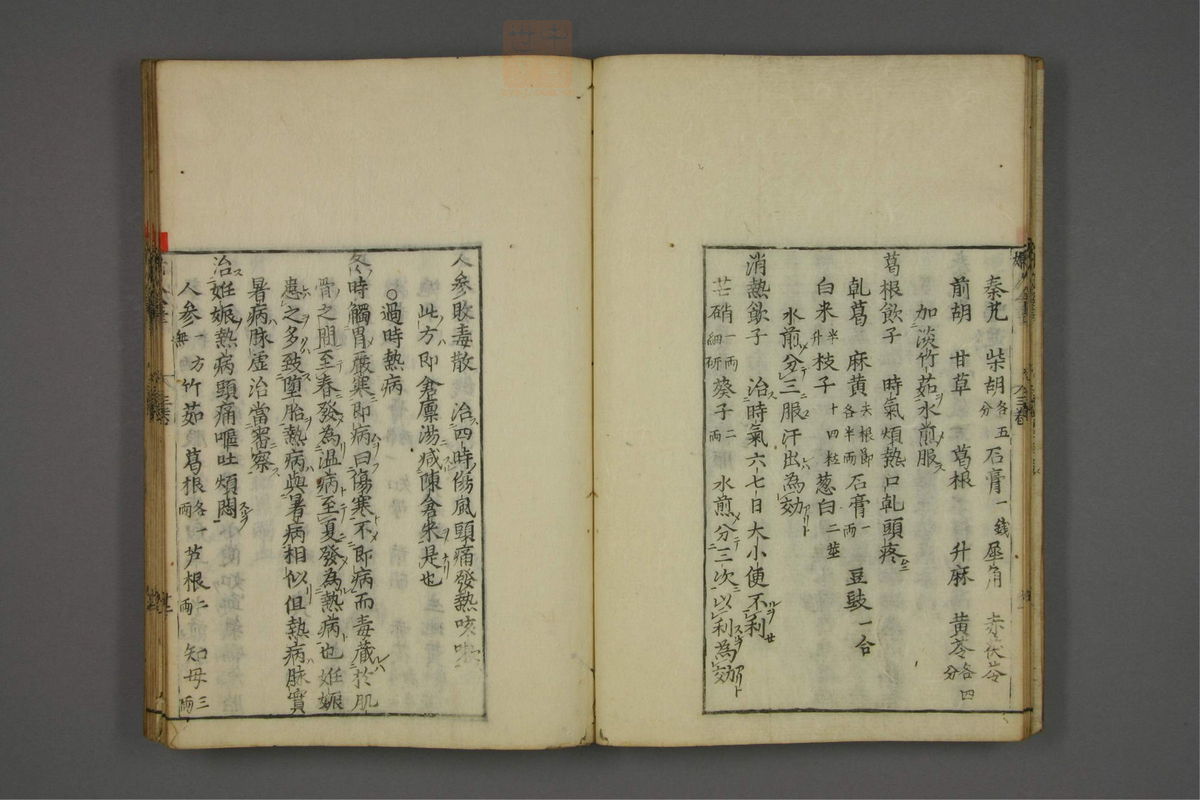 秦艽 柴胡各五分 石膏一錢 犀角 赤茯苓
前胡 甘草 葛根 升麻 黄芩各四分
加淡竹茹水煎服
葛根飲子 時氣煩熱口乾頭疼
乾葛 麻黄去根節各半兩 石膏一兩 豆豉一合
白米半升 枝子十四粒 葱白二莖
水煎分三服汗出為効
消熱飲子 治時氣六七日大小便不利
芒硝一兩細研 葵子二兩 水煎分三次以利為効
人參敗毒散 治四時傷風頭痛發熱咳嗽
此方即倉廩湯減陳倉米是也
○過時熱病
冬時觸冒嚴寒即病曰傷寒不即病而毒藏於肌
骨之間至春發為温病至夏發為熱病也妊娠
患之多致墮胎熱病與暑病相似但熱病脉實
暑病脉虚治當審察
治妊娠熱病頭痛嘔吐煩悶
人參一方無 竹茹 葛根各一兩 芦根二兩 知母三兩